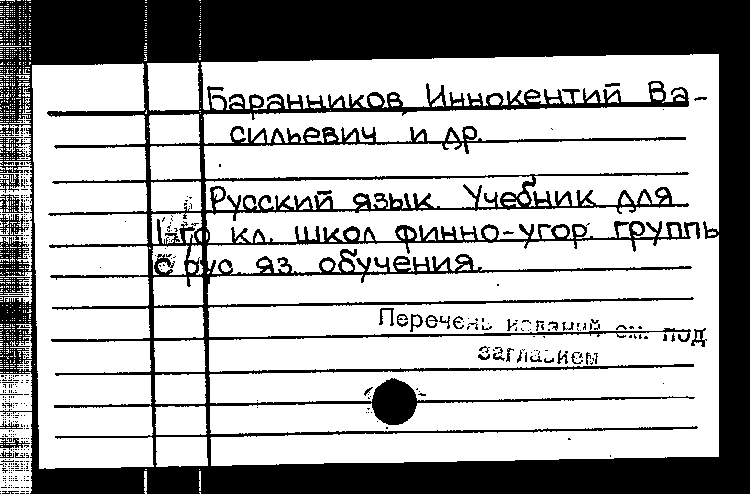 Баранников, Иннокентий Ва-
сильевич и др.
Русский язык. Учебник для
1-го кл. школ финно-угор. группы
с рус. яз. обучения.
Перечень изданий см. под
заглавием